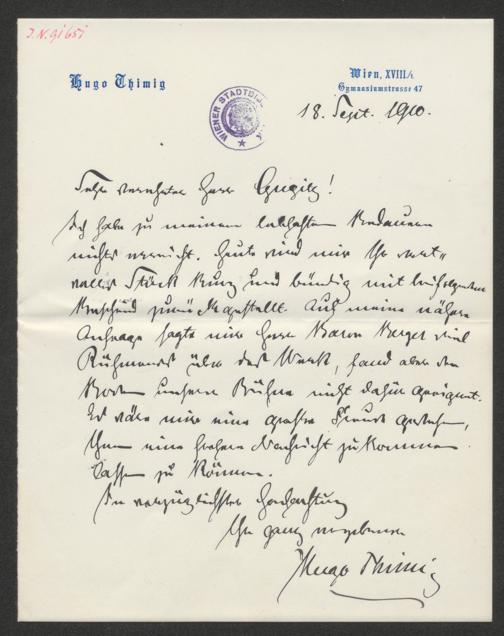 J.N. 91651
Hugo Thimig
Wien, XVIII/1.
Gymnasiumstrasse 47
WIENER STADTBIBL
18. Sept. 1910.
Sehr verehrter Herr Gugitz!
Ich habe zu meinem lebhaften Bedauern
nichts erreicht. Heute wird mir Ihr wert-
volles Stück kurz und bündig mit beifolgendem
Bescheid zurückgestellt. Auf meine nähere
Anfrage sagte mir Herr Baron Berger viel
Rühmendes über das Werk, fand aber den
Boden unserer Bühne nicht dafür geeignet.
Es wäre mir eine große Freude gewesen,
Ihnen eine frohere Nachricht zukommen
lassen zu können.
In vorzüglichster Hochachtung
Ihr ganz ergebener
Hugo Thimig